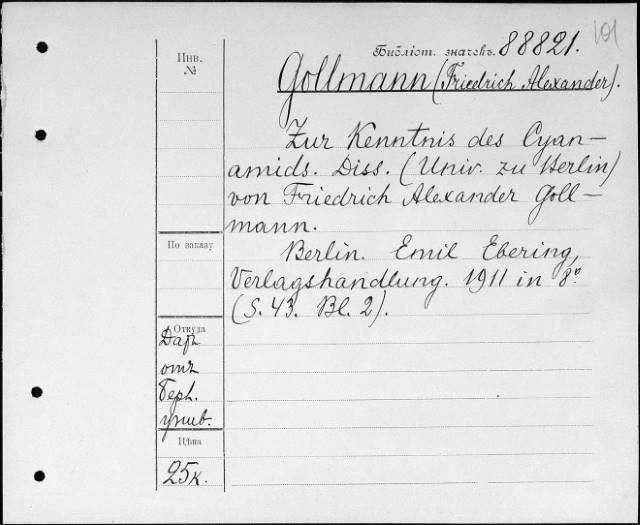 101
Инв.
№
Библіот. значекъ. 88821.
Gollmann (Friedrich Alexander).
Zur Kenntnis des Cyan–
amids. Diss. (Univ. zu Berlin)
von Friedrich Alexander Goll–
mann.
По заказу
Berlin. Emil Ebering,
Verlagshandlung. 1911 in 8º
(S. 43. Bl. 2).
Откуда
Даръ
отъ
Берл.
унив.
Цѣна
25к.